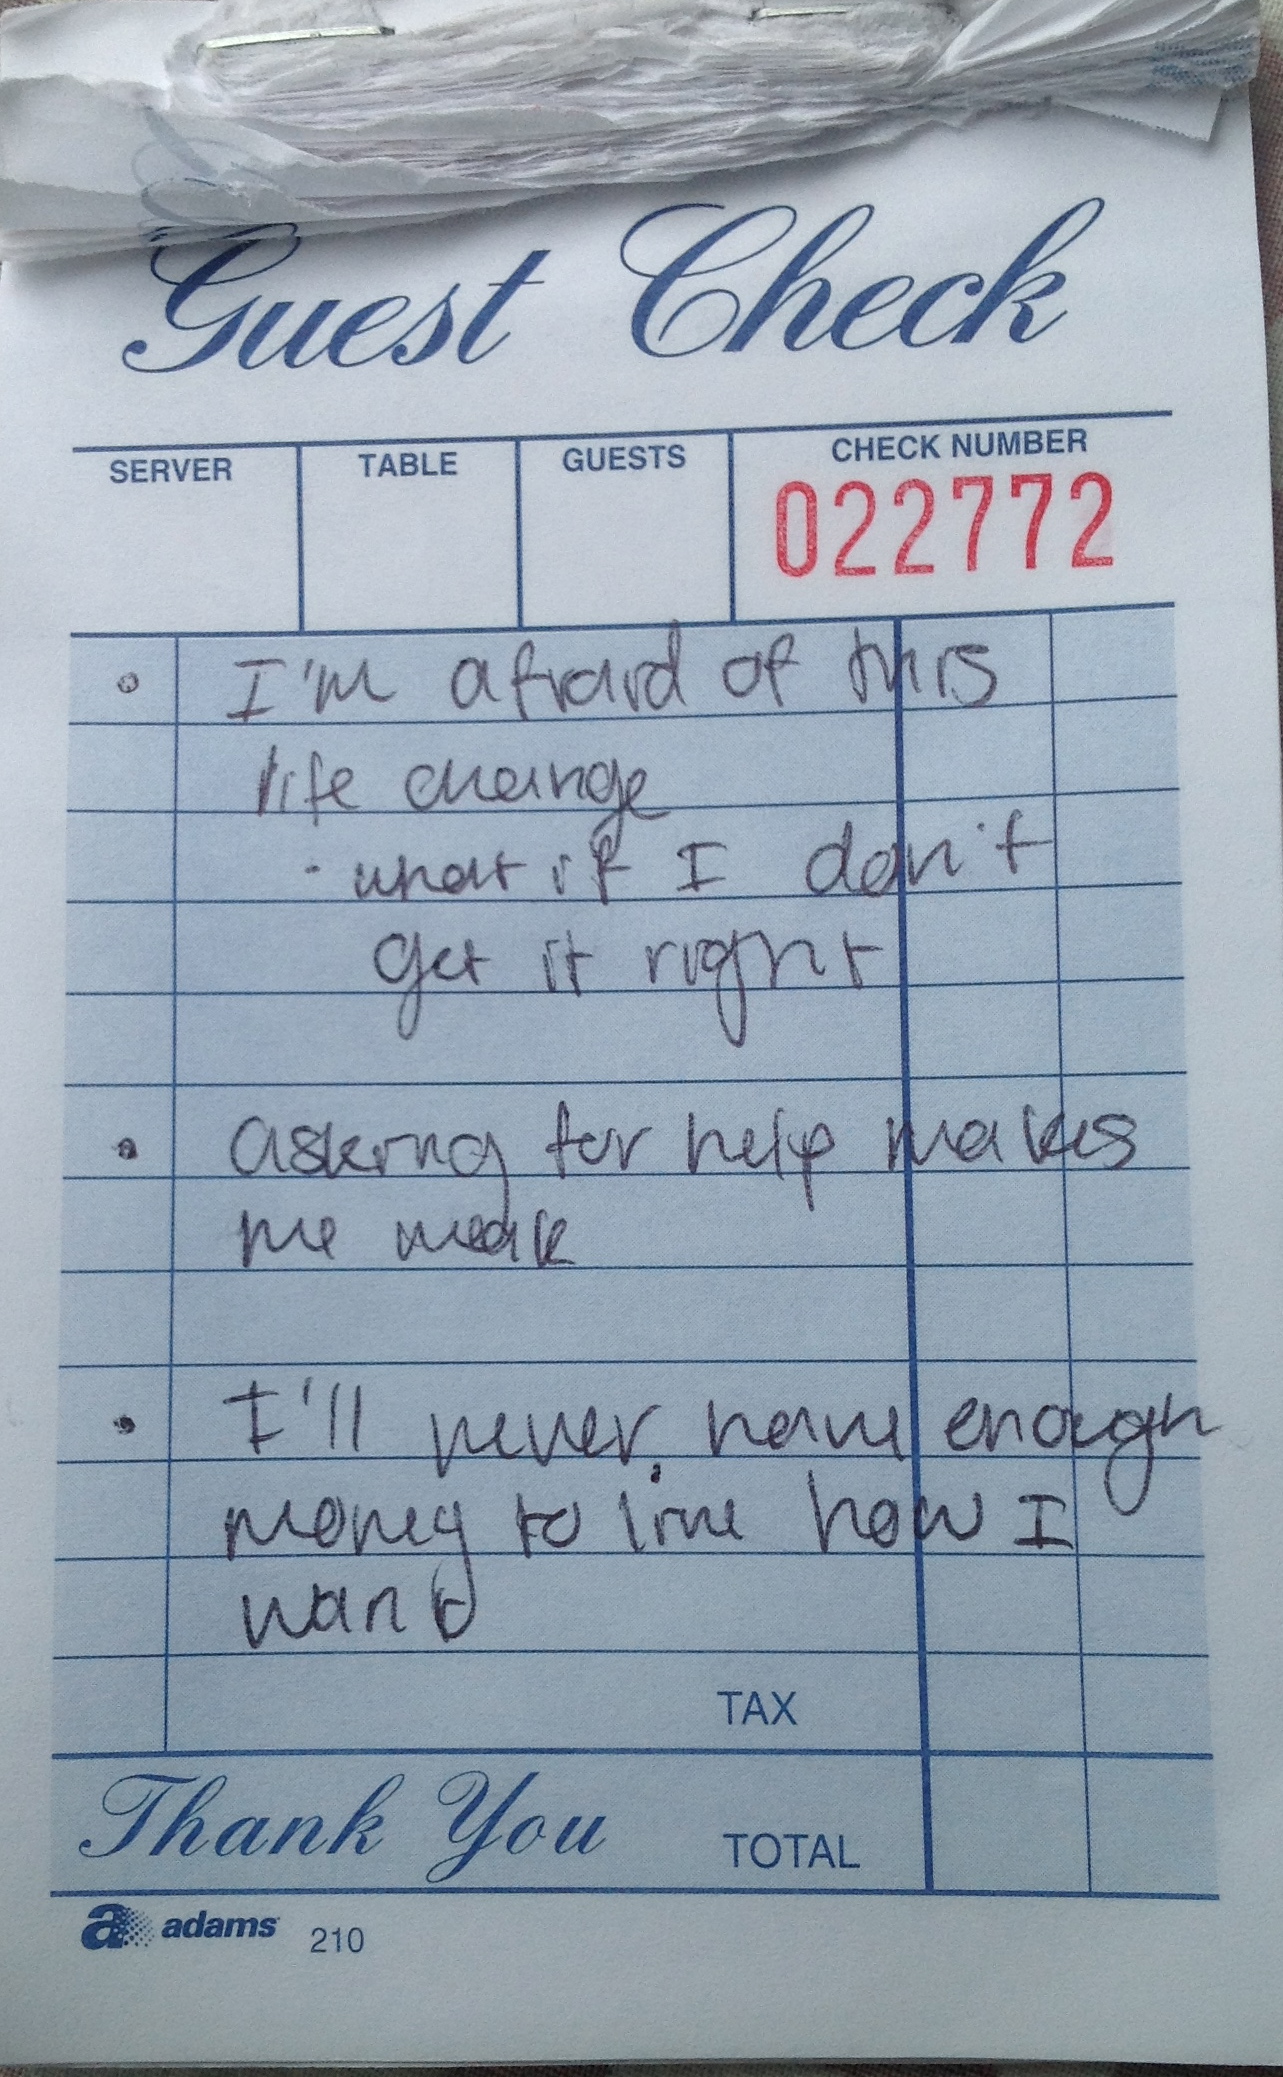 Guest Check
SERVER TABLE GUESTS CHECK NUMBER
022772
• I'm afraid of this
life change
• what if I don't
get it right
• asking for help makes
me weak
• I'll never have enough
money to live how I
want
TAX
Thank You TOTAL
a adams 210